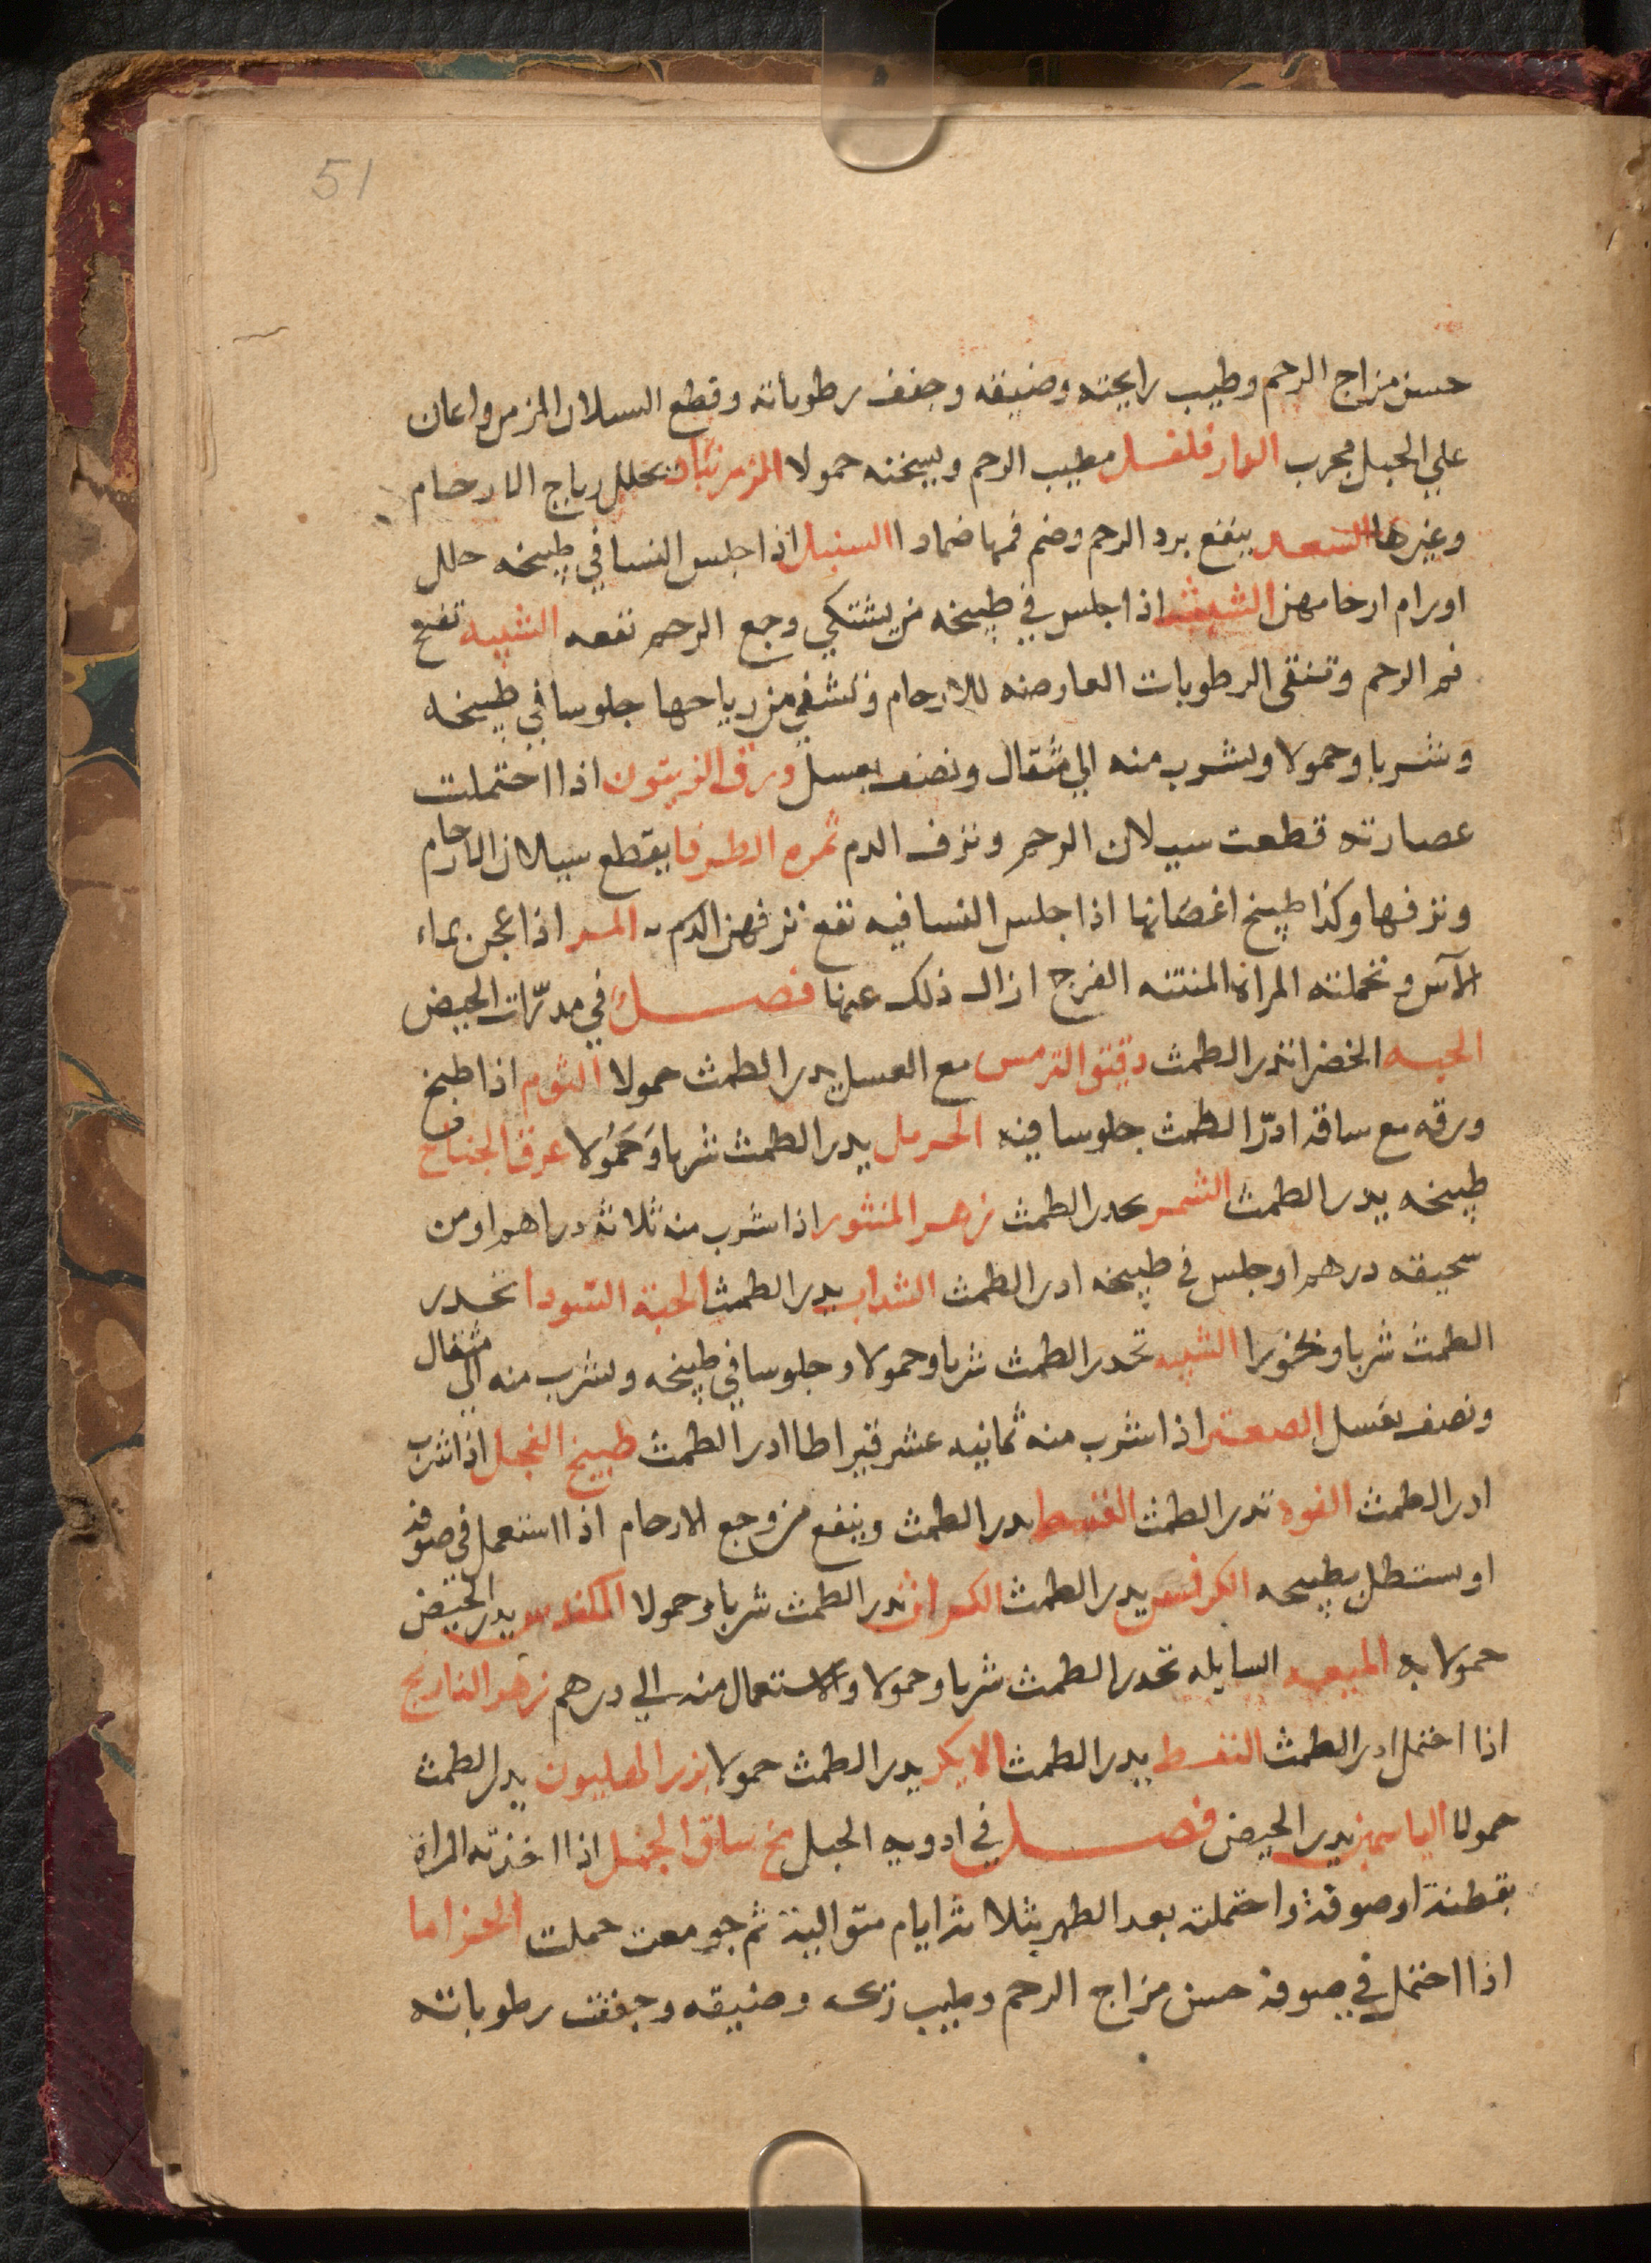 51
حسن مزاج الرحم وطيب رايحته وضيقه وجفف رطوباته وقطع السيلان المزمن واعان
علي الحبل مجرب الدارفلفل مطيب الرحم ويسخنه حمولا المرزنبان يحلل رياح الارحام
وغيرها السعد ينفع برد الرحم وضم فمها ضمادا السنبل اذا جلس النسا في طبيخه حلل
اورام ارحامهن الشبث اذا جلس في طبيخه من يشتكي وجع الرحم نفعه الشيبه تفتح
فم الرحم وتنقى الرطوبات العارضه للارحام وتشفي من رياحها جلوسا في طبيخه
وشربا وحمولا ويشرب منه الي مثقال ونصف بعسل ورق الزيتون اذا احتملت
عصارته قطعت سيلان الرحم ونزف الدم ثمره الطرفا يقطع سيلان الارحام
ونزفها وكذا طبيخ اغصانها اذا جلس النسا فيه نفع نزفهن الدم المر اذا عجن بماء
الآس وتحملته المراة المنتنه الفرج ازال ذلك عنها فصل في مدرّات الحيض
الحبه الخضرا تدر الطمث دقيق الترمس مع العسل يدر الطمث حمولا الثوم اذا طبخ
ورقه مع ساقه ادرّ الطمث جلوسا فيه الحرمل يدر الطمث شربا وَحَمُولا عرق الجناح
طبيخه يدر الطمث الشمر يحدر الطمث زهر المنثور اذا شرب منه ثلاثة دراهم او من
سحيقه درهم او جلس في طبيخه ادر الطمث السداب يدر الطمث الحبة السودا تحدر
الطمث شربا وبخورا الشيبه تحدر الطمث شربا وحمولا وجلوسا في طبيخه ويشرب منه الي مثقال
ونصف بعسل الصعتر اذا شرب منه ثمانيه عشر قيراطا ادر الطمث طبيخ الفجل اذا شرب
ادر الطمث الفوه تدر الطمث القسط يدر الطمث وينفع من وجع الارحام اذا استعمل في صوفه
او ستنطل بطبيخه الكرفس يدر الطمث الكراث يدر الطمث شربا وحمولا الكندس يدر الحيض
حمولا به الميعه السايله تحدر الطمث شربا وحمولا والاستعمال منه الي درهم زهر النارنج
اذا احتمل ادر الطمث النفط يدر الطمث الايكر يدر الطمث حمولا بزر الهليون يدر الطمث
حمولا الياسمين يدر الحيض فصل في ادويه الحبل مخ ساق الجمل اذا اخذته المراة
بقطنة او صوفة واحتملته بعد الطهر بثلاثة ايام متوالية ثم جومعت حملت الخزاما
اذا احتمل في صوفة حسن مزاج الرحم وطيب ريحه وضيقه وجففت رطوباته